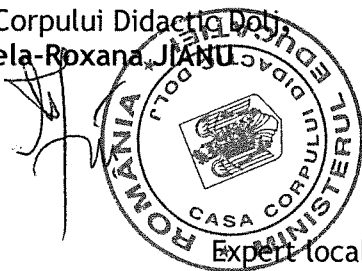 Corpului Didactic Dolj,
ela-Roxana JIANU
ROMÂNIA * MINISTERUL EDUCAȚIEI *
CASA CORPULUI DIDACTIC DOLJ
Expert local